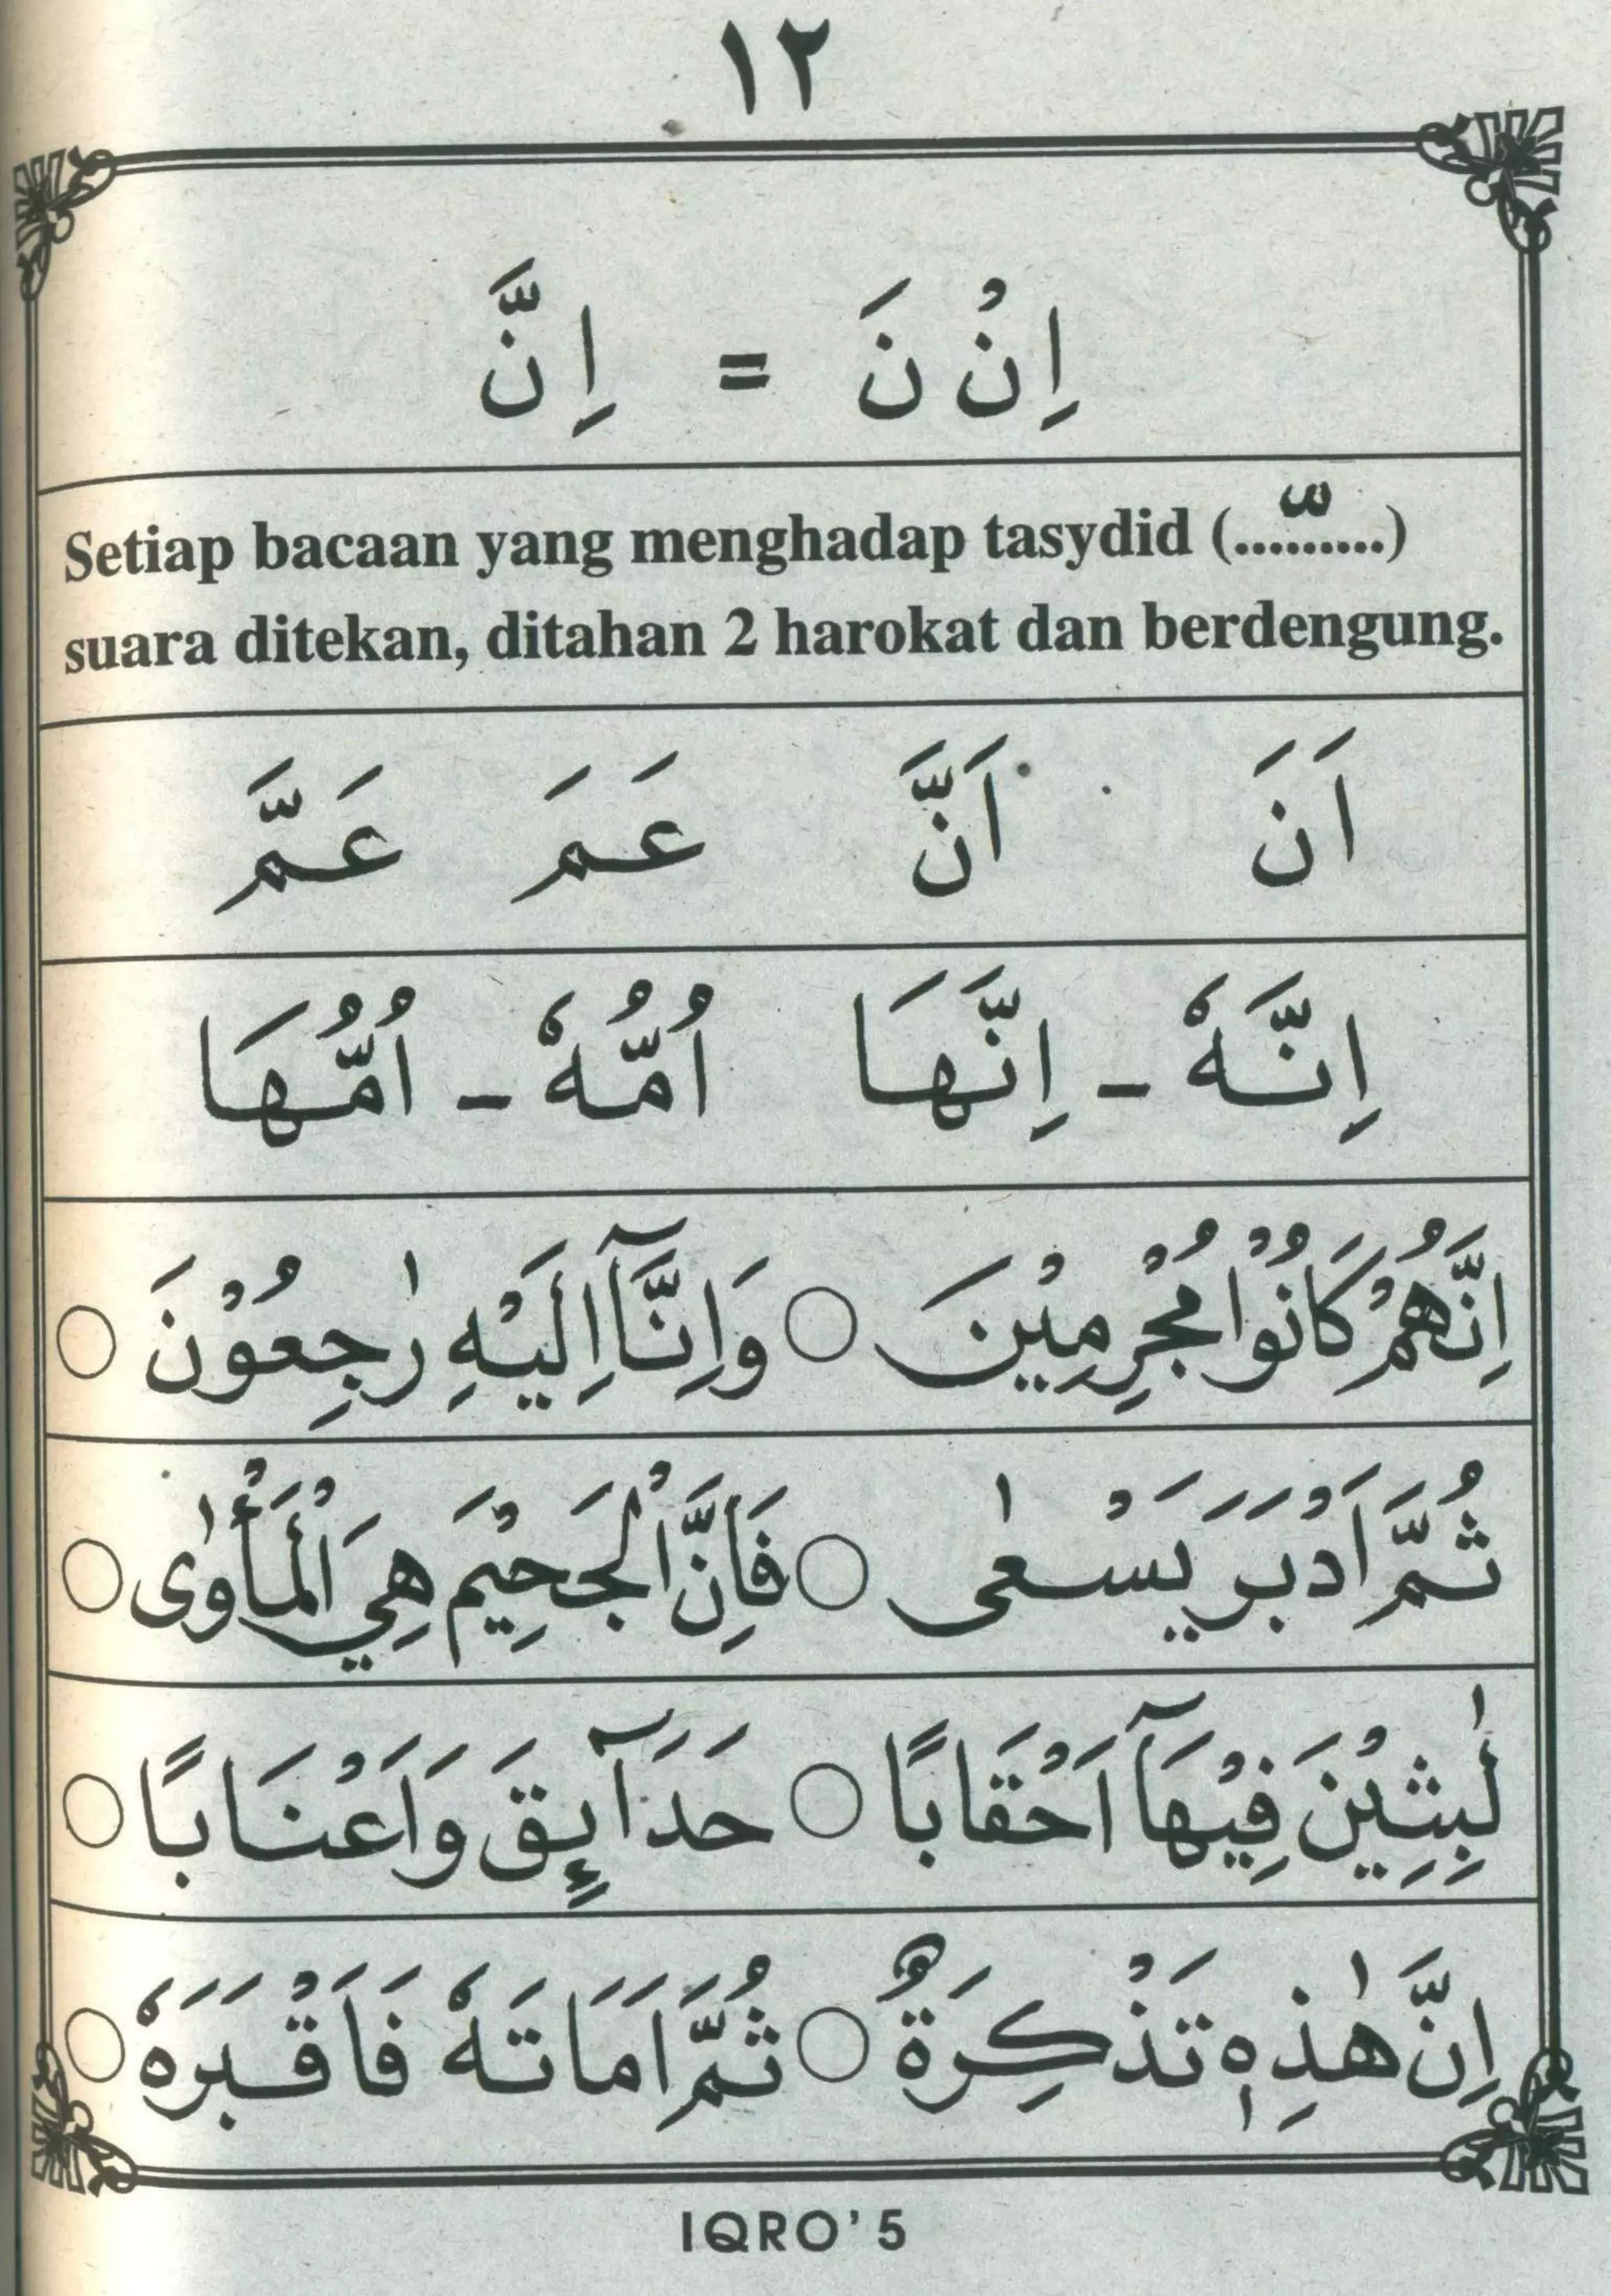 ١٢
اِنْ نَ = اِنَّ
Setiap bacaan yang menghadap tasydid (....ّ.....)
suara ditekan, ditahan 2 harokat dan berdengung.
اَنَ اَنَّ عَمَ عَمَّ
اِنَّهٗ - اِنَّهَا اُمُّهٗ - اُمُّهَا
اِنَّهُمْ كَانُوْا مُجْرِمِيْنَ ○ وَاِنَّآ اِلَيْهِ رٰجِعُوْنَ ○
ثُمَّ اَدْبَرَ يَسْعٰى ○ فَاِنَّ الْجَحِيْمَ هِيَ الْمَأْوٰى ○
لٰبِثِيْنَ فِيْهَآ اَحْقَابًا ○ حَدَآئِقَ وَاَعْنَابًا ○
اِنَّ هٰذِهٖ تَذْكِرَةٌ ○ ثُمَّ اَمَاتَهٗ فَاَقْبَرَهٗ ○
IQRO'5